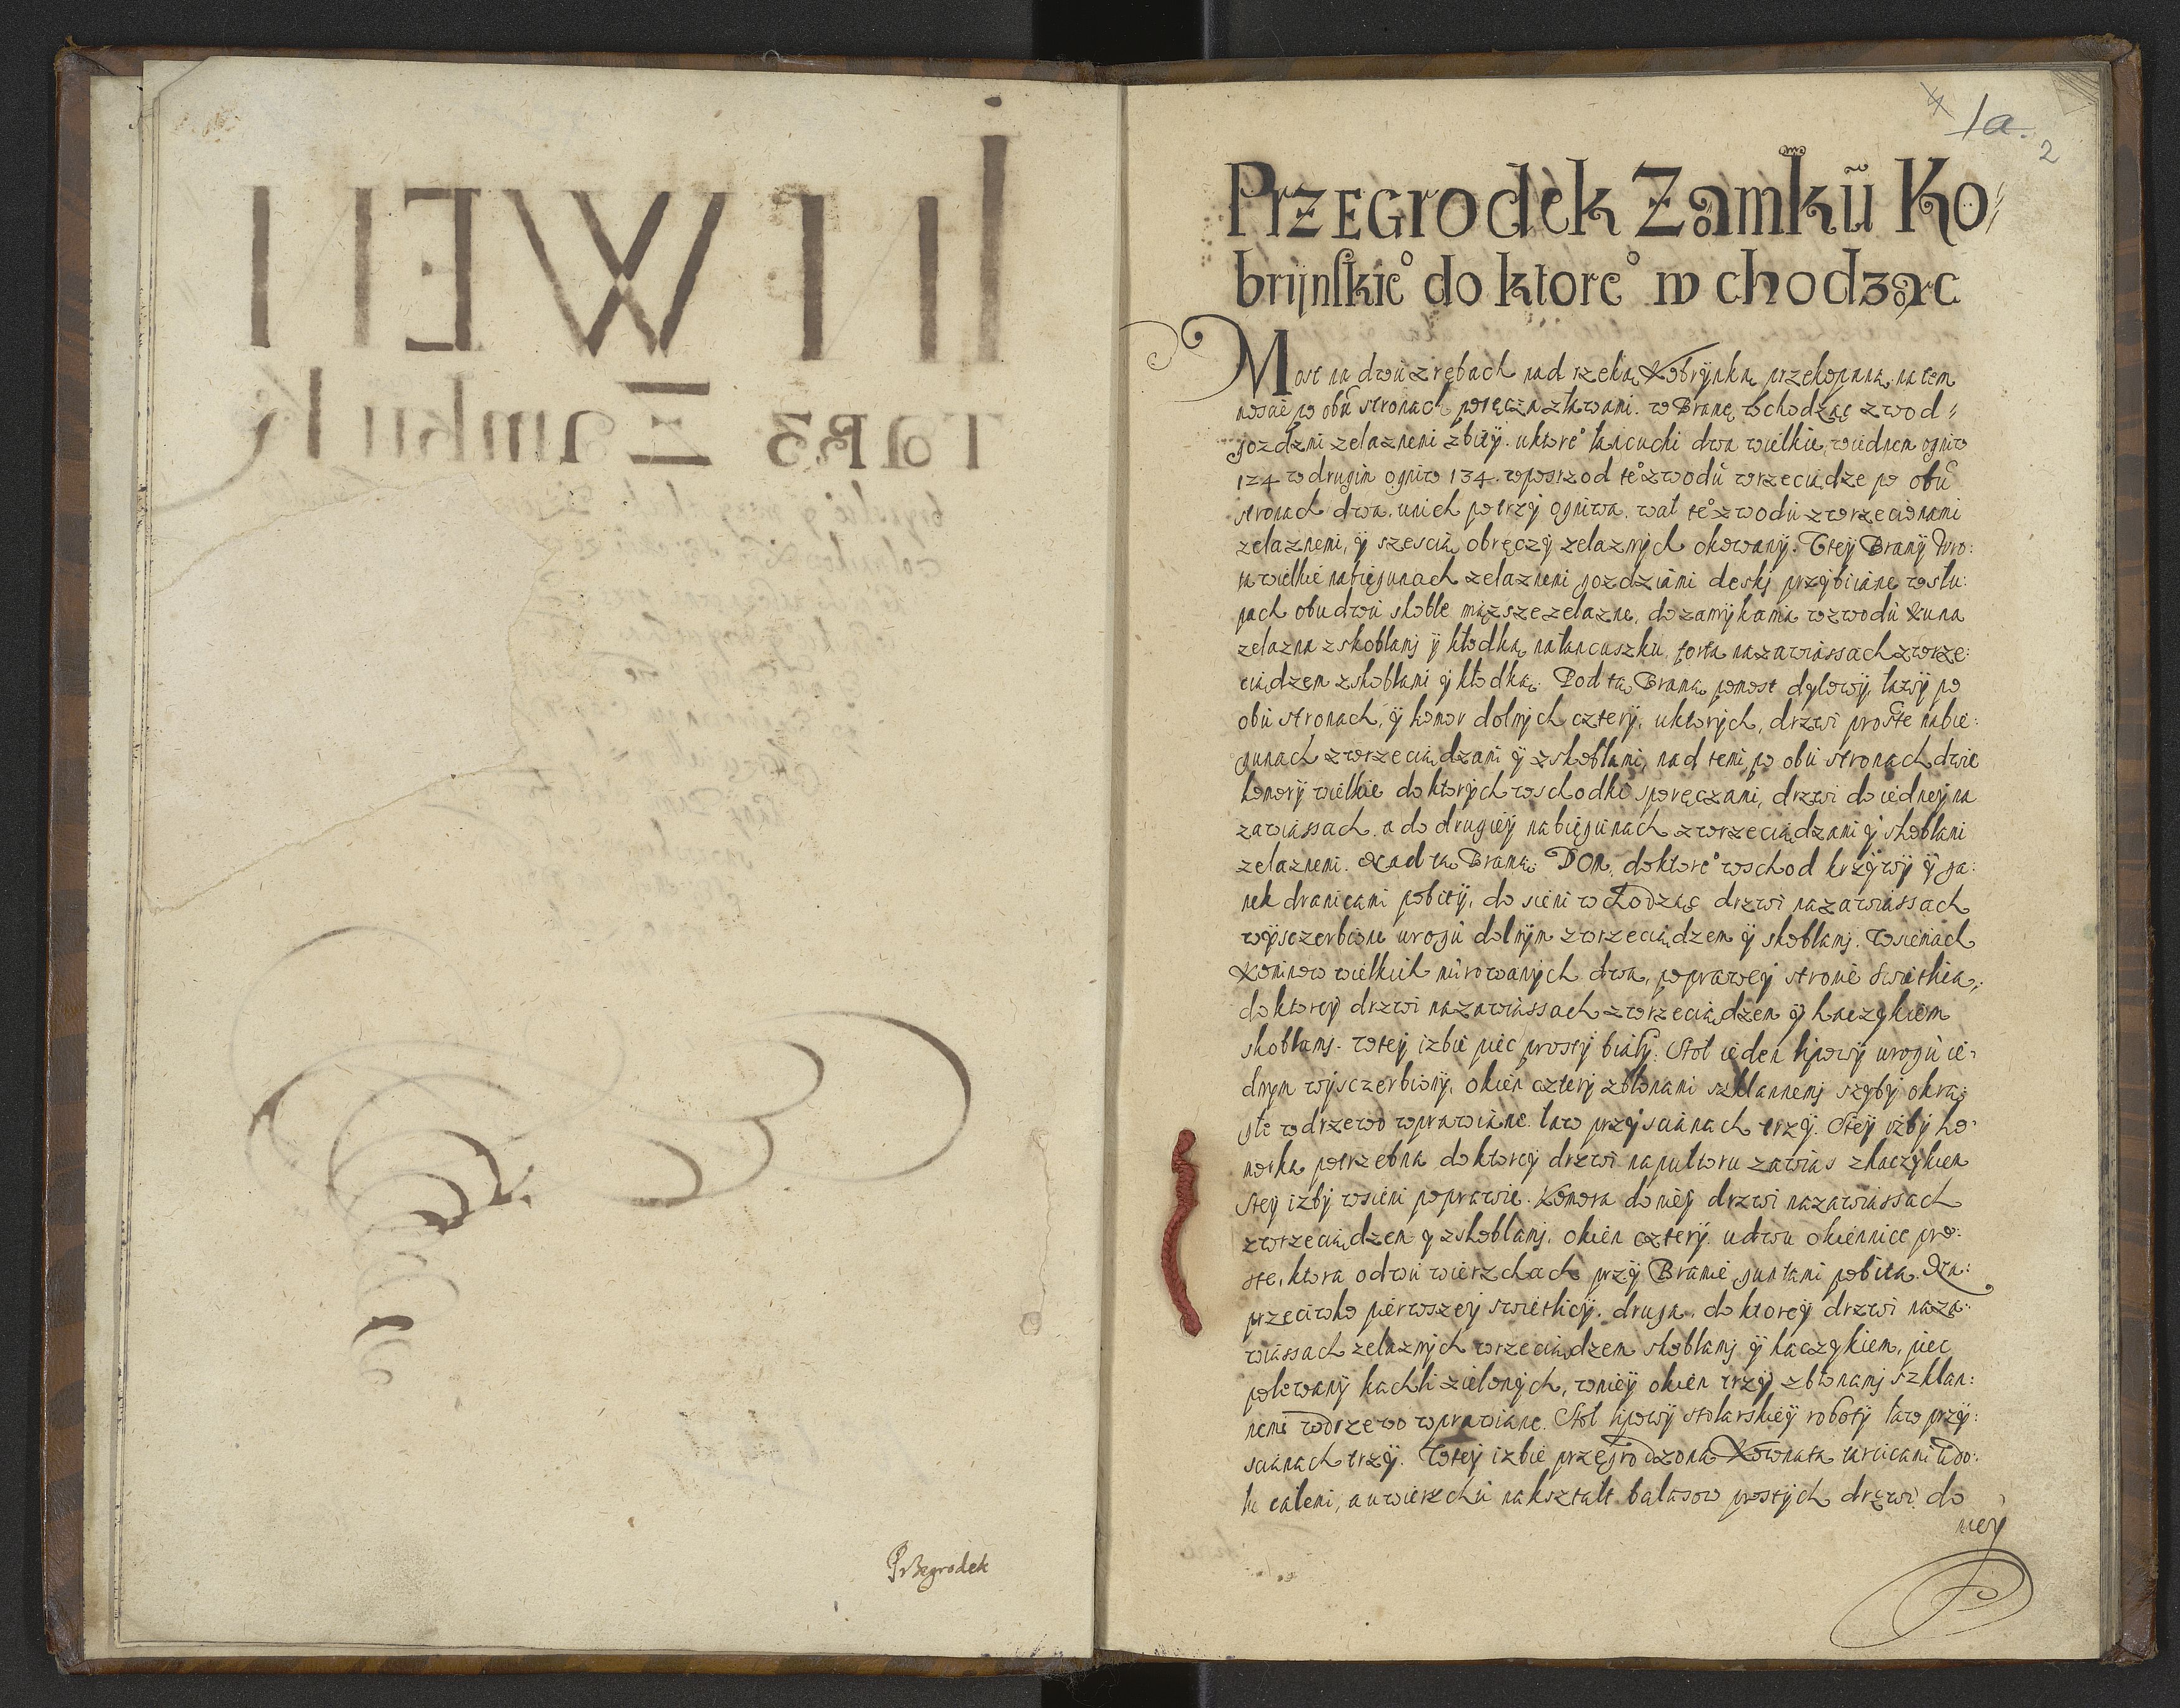 Przegrodek
4
1a.
2
Przegrodek Zamkũ Ko⸗
brijnſkie° do ktore° w chodząc
Most na dwu zrębach nad rzeką Kobrynką przekopaną, na tem
moscie po obu stronach poręcza z ławami. w Bramę wchodząc zwod⸗
gozdzmi zelaznemi zbity. u ktore° łancuchi dwa wielkie, wiednem ogniw
124 w drugim ogniw 134. wposrzod te° zwodu wrzeciądze po obu
stronach dwa. unich potrzy ogniwa. wał te° zwodu z wrzecionami
zelaznemi, y szescią obręczy zelaznych okowany. Utey Bramy Wro:
ta wielkie nabiegunach zelaznemi gozdziami deski przybiiane wsłu:
pach obudwu skoble miązsze zelazne, do zamykania wzwodu Kuna
zelazna z skoblamj y kłodką na łancuszku, forta nazawiassach zwrze:
ciądzem z skoblami y kłodką. Pod tą Bramą pomost dylowy, ławy po
obu stronach, y komor dolnych cztery, uktorych, drzwi proste nabie:
gunach zwrzeciądzami y zskoblami, nad temi, po obu stronach dwie
komory wielkie do ktorych wschodki sporęczami, drzwi do iedney na
zawiassach. a do drugiey nabiegunach zwrzeciądzami y skoblami
zelaznemi. Nad tą Bramą Dom, doktore° wschod krzywy y ga:
nek dranicami pobity, do sieni wchodząc drzwi nazawiassach
wysczerbione urogu dolnym zwrzeciądzem y skoblamj. Wsieniach
Kominow wielkich murowanych dwa, poprawey stronie Swietlica,
doktorey drzwi nazawiassach zwrzeciądzem y haczykiem
skoblamj. Wtey izbie piec prosty biały. Stoł ieden lipowy urogu ie⸗
dnym wysczerbiony, okien cztery zbłonami szklannemj szyby okrą⸗
głe wdrzewo wprawiane. ław przy scianach trzy. Stey izby ko⸗
morka potrzebna doktorey drzwi napułtoru zawias zhaczykiem
Stey izby wsieni poprawie. Komora doniey drzwi nazawiassach
zwrzeciądzem y zskoblamj, okien cztery. udwu okiennice pro:
ste, ktora odwu wierzchach przy Bramie guntami pobita. Na:
przeciwko pierwszey swietlicy. druga. do ktorey drzwi naza:
wiassach zelaznych wrzeciądzem skoblamj y haczykiem, piec
polewany kachli zielonych, wniey okien trzy zbłonamj szklan:
nemi wdrzewo wprawiane. Stoł lipowy stolarskiey roboty ław przy:
scianach trzy. Wtey izbie przegrodzona Komnata tarcicami udo:
łu całemi, a uwierzchu nakształt balasow prostych drzwi do
niey